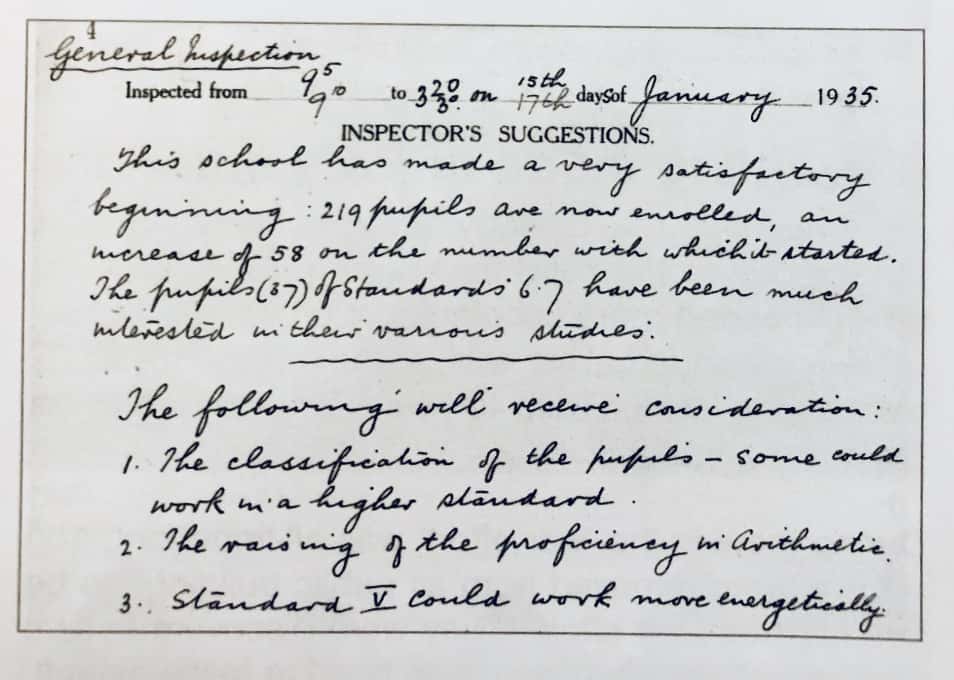 4
General Inspection
Inspected from 9 5 9 10 to 3 20 3 30 on 15th 17th daysof January 1935.
INSPECTOR'S SUGGESTIONS.
This school has made a very satisfactory
beginning: 219 pupils are now enrolled, an
increase of 58 on the number with which it started.
The pupils (37) of Standards 6.7 have been much
interested in their various studies.
The following will receive consideration:
1. The classification of the pupils – some could
work in a higher standard.
2. The raising of the proficiency in Arithmetic.
3. Standard V could work more energetically.